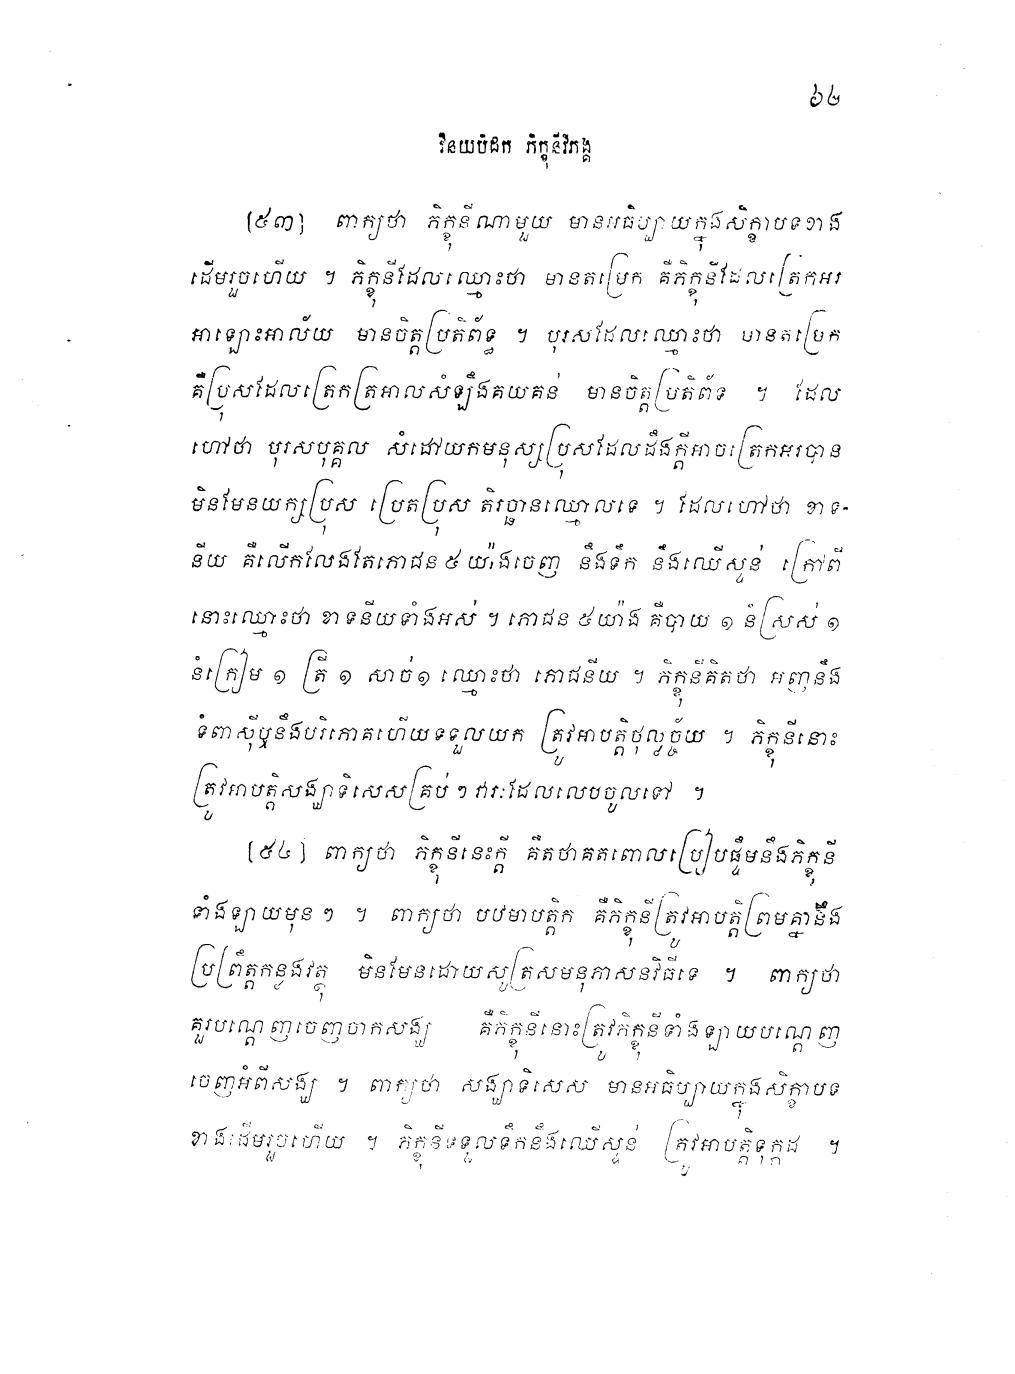 ៦២
វិនយបិដក ភិក្ខុនីវិភង្គ
[៥៣] ពាក្យថា ភិក្ខុនីណាមួយ មានអធិប្បាយក្នុងសិក្ខាបទខាង
ដើមរួចហើយ ។ ភិក្ខុនីដែលឈ្មោះថា មានតម្រេក គឺភិក្ខុនីដែលត្រេកអរ
អាឡោះអាល័យ មានចិត្តប្រតិព័ទ្ធ ។ បុរសដែលឈ្មោះថា មានតម្រេក
គឺប្រុសដែលត្រេកត្រអាលសំឡឹងគយគន់ មានចិត្តប្រតិព័ទ ។ ដែល
ហៅថា បុរសបុគ្គល សំដៅយកមនុស្សប្រុសដែលដឹងក្តីអាចត្រេកអរបាន
មិនមែនយក្សប្រុស ប្រេតប្រុស តិរច្ឆានឈ្មោលទេ ។ ដែលហៅថា ខាទ-
នីយ គឺលើកលែងតែភោជន ៥ យ៉ាងចេញ នឹងទឹក នឹងឈើស្ទន់ ក្រៅពី
នោះឈ្មោះថា ខាទនីយទាំងអស់ ។ ភោជន ៥យ៉ាង គឺបាយ ១ នំស្រស់ ១
នំក្រៀម ១ ត្រី ១ សាច់១ ឈ្មោះថា ភោជនីយ ។ ភិក្ខុនីគិតថា អញនឹង
ទំពាស៊ីឬនឹងបរិភោគហើយទទួលយក ត្រូវអាបត្តិថុល្លច្ច័យ ។ ភិក្ខុនីនោះ
ត្រូវអាបត្តិសង្ឃាទិសេសគ្រប់ ៗ វារៈដែលលេបចូលទៅ ។
[៥៤] ពាក្យថា ភិក្ខុនីនេះក្តី គឺតថាគតពោលប្រៀបផ្ទឹមនឹងភិក្ខុនី
ទាំងឡាយមុន ៗ ។ ពាក្យថា បឋមាបត្តិក គឺភិក្ខុនីត្រូវអាបត្តិព្រមគ្នានឹង
ប្រព្រឹត្តកន្លងវត្ថុ មិនមែនដោយសូត្រសមនុភាសនវិធីទេ ។ ពាក្យថា
គួរបណ្តេញចេញចាកសង្ឃ គឺភិក្ខុនីនោះត្រូវភិក្ខុនីទាំងឡាយបណ្តេញ
ចេញអំពីសង្ឃ ។ ពាក្យថា សង្ឃាទិសេស មានអធិប្បាយក្នុងសិក្ខាបទ
ខាងដើមរួចហើយ ។ ភិក្ខុនីទទួលទឹកនឹងឈើស្ទន់ ត្រូវអាបត្តិទុក្កដ ។